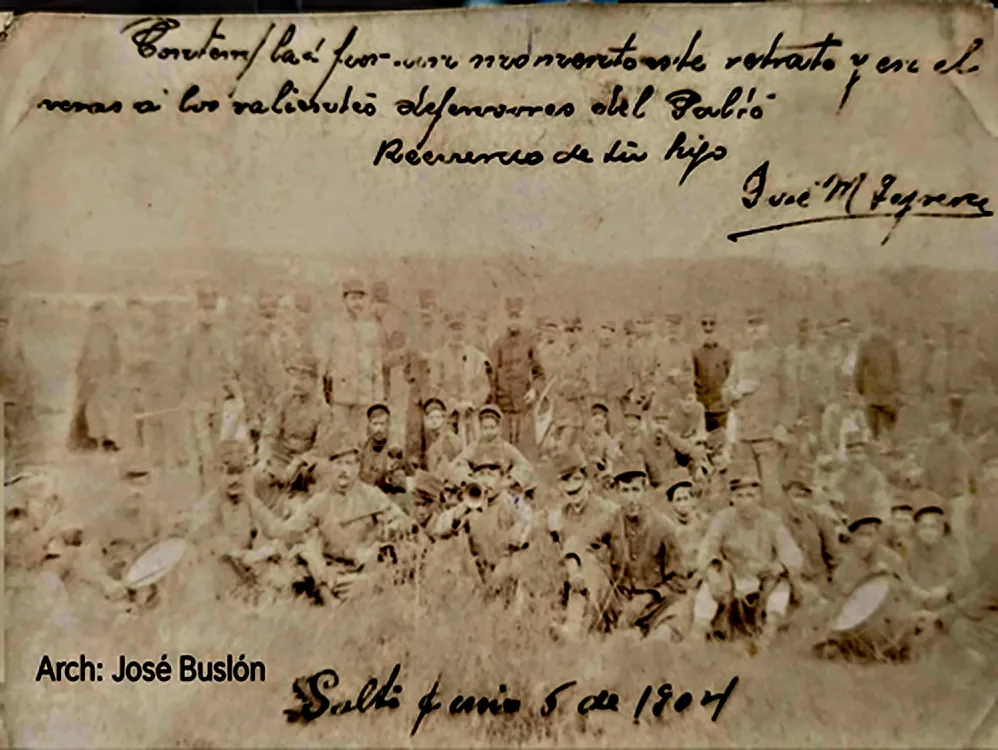 Contemplad por un momento este retrato y en el
veras a los valientes defensores del Pabió
Recuerdo de tu hijo
José M
Arch: José Buslón
Salto Junio 5 de 1904